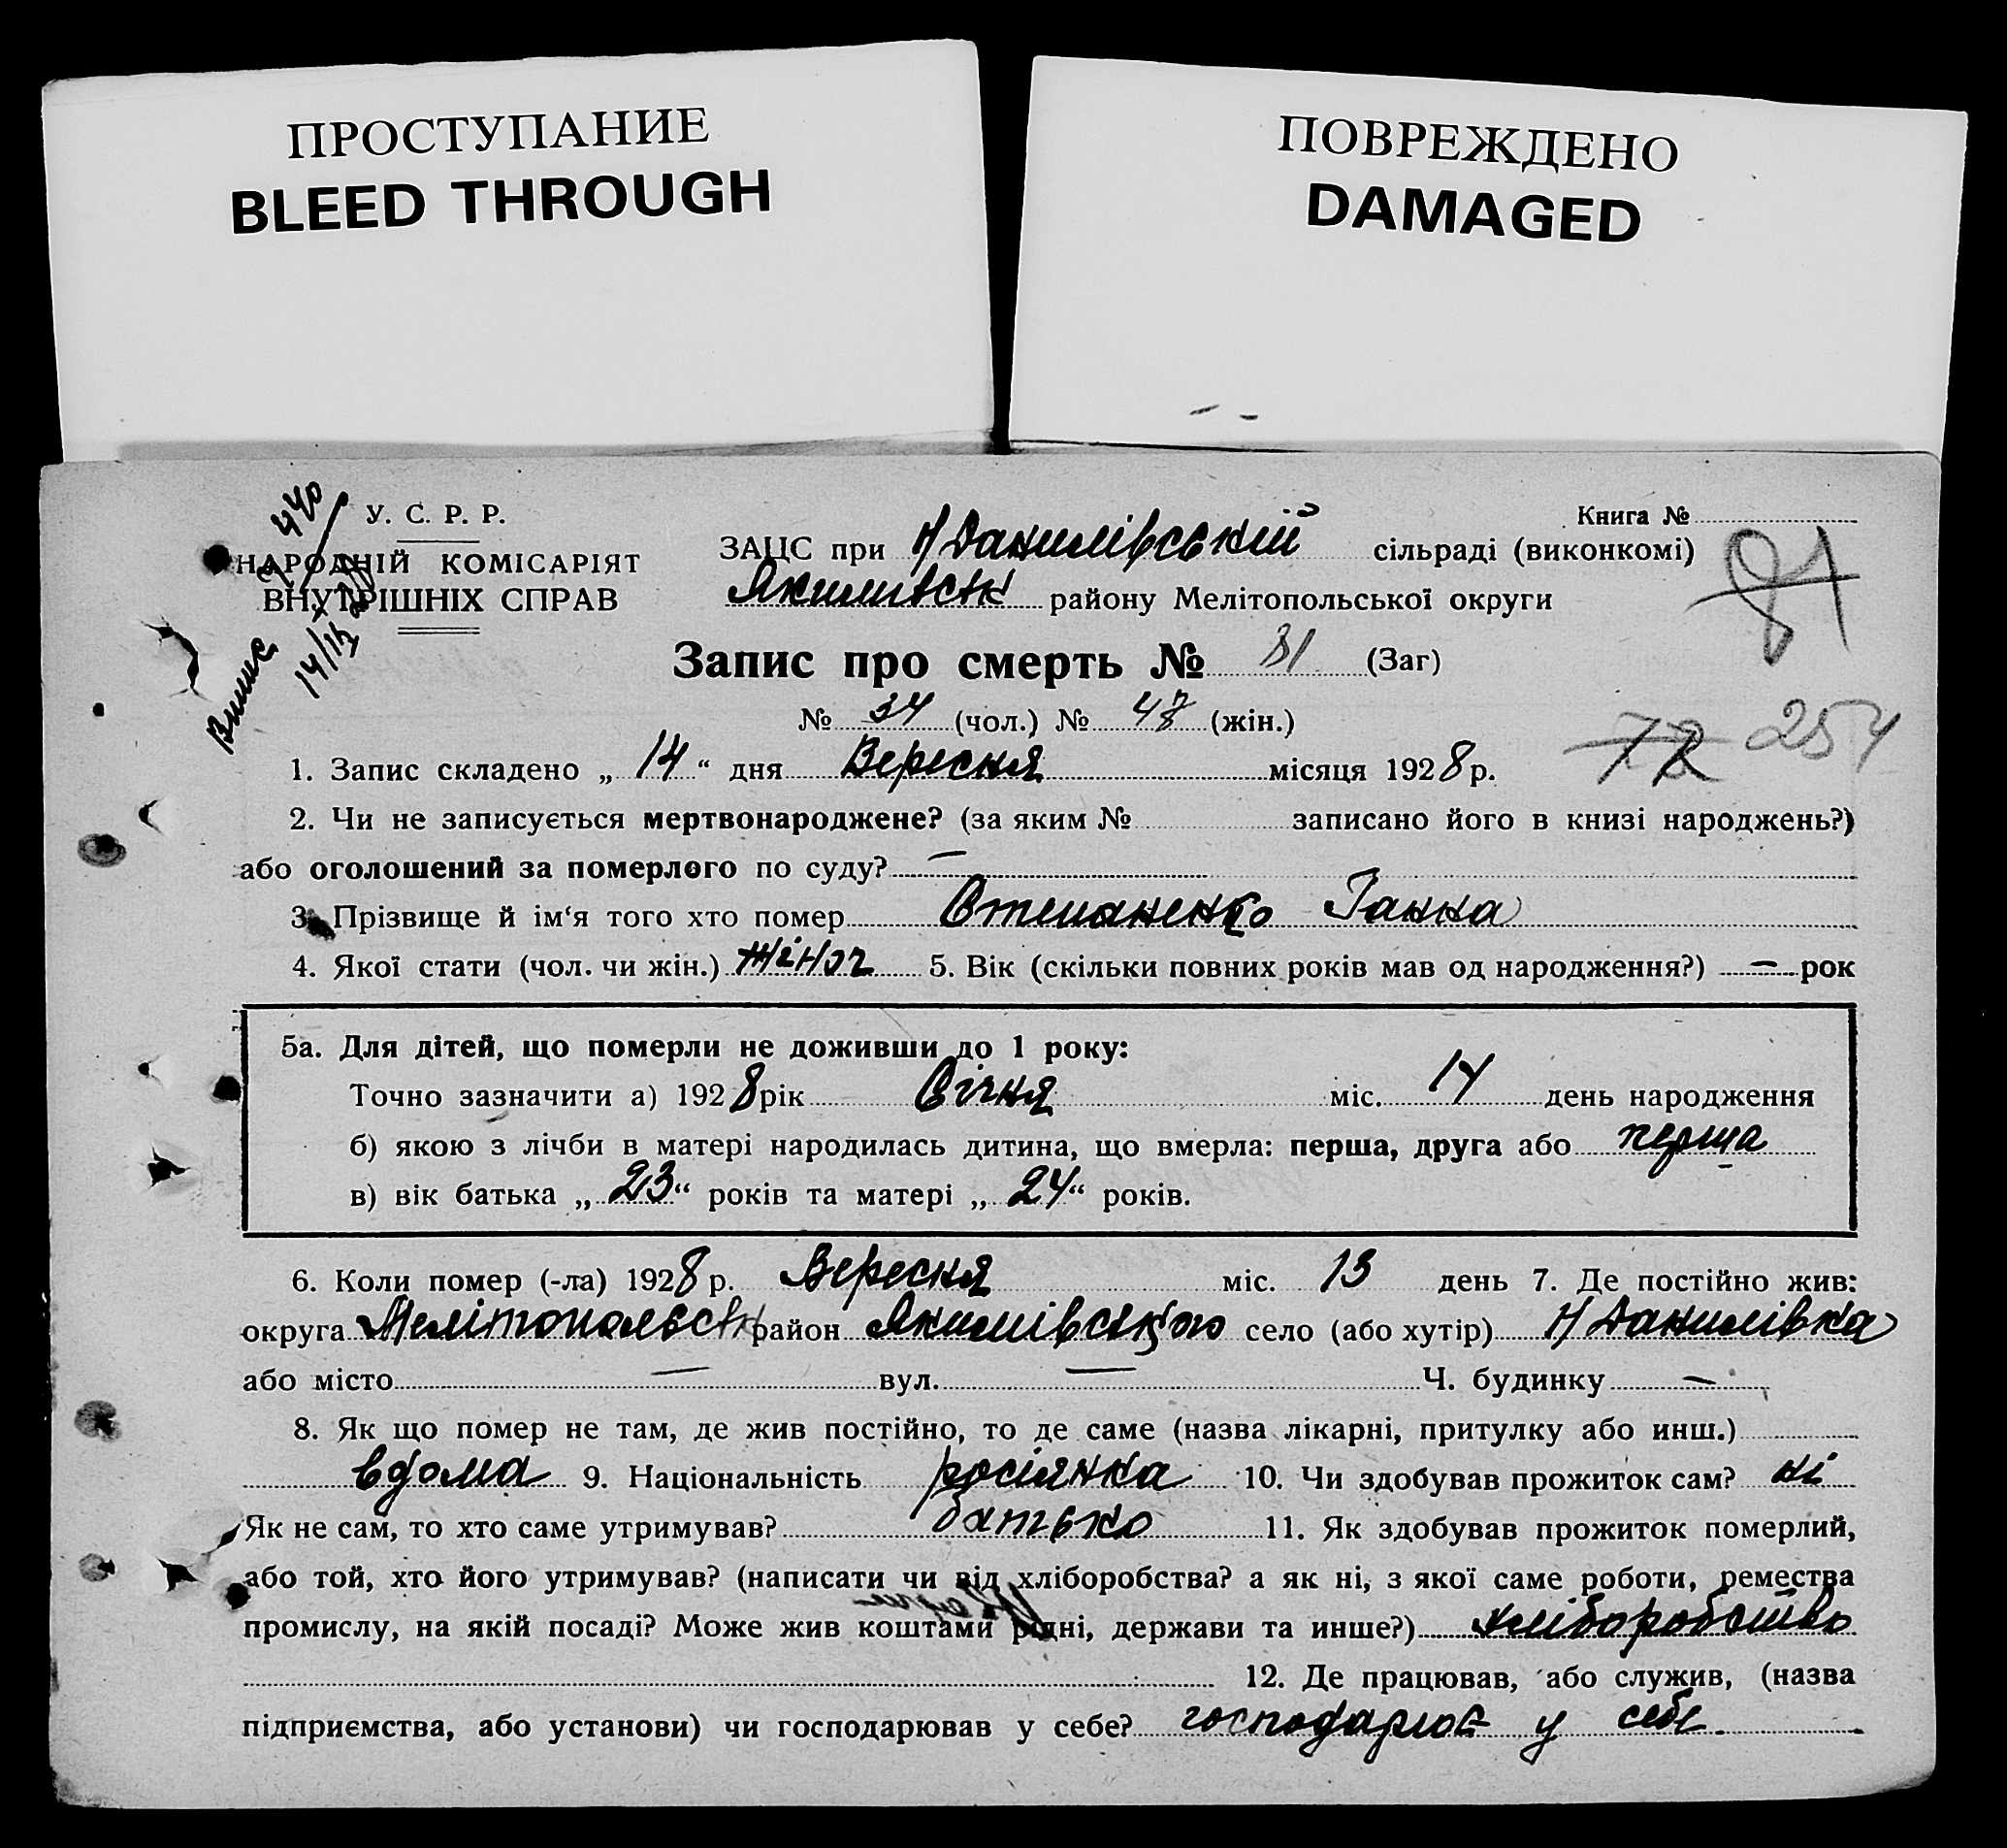 ПРОСТУПАНИЕ
BLEED THROUGH
ПОВРЕЖДЕНО
DAMAGED
У. С. Р. Р.
НАРОДНІЙ КОМІСАРІЯТ
ВНУТРІШНІХ СПРАВ
Книга №
ЗАЦС при Н Данилівській сільраді (виконкомі)
Якимівськ району Мелітопольської округи
Запис про смерть № 81 (Заг)
№ 34 (чол.) № 47 (жін.)
72 254
1. Запис складено „ 14 “ дня Вересня місяця 1928 р.
2. Чи не записується мертвонароджене? (за яким № записано його в книзі народжень?)
або оголошений за померлого по суду? —
3. Прізвище й ім‘я того хто помер Степаненко Ганна
4. Якої стати (чол. чи жін.) жіноч 5. Вік (скільки повних років мав од народження?) — рок
5а. Для дітей, що померли не доживши до 1 року:
Точно зазначити а) 1928 рік Січня міс. 14 день народження
б) якою з лічби в матері народилась дитина, що вмерла: перша, друга або перша
в) вік батька „ 23 “ років та матері „ 24 “ років.
6. Коли помер (-ла) 1928 р. Вересня міс. 13 день 7. Де постійно жив:
округа Мелітопольськ район Якимівського село (або хутір) Н Данилівка
або місто — вул. — Ч. будинку —
8. Як що помер не там, де жив постійно, то де саме (назва лікарні, притулку або инш.)
вдома 9. Національність росіянка 10. Чи здобував прожиток сам? ні
Як не сам, то хто саме утримував? батько 11. Як здобував прожиток померлий,
або той, хто його утримував? (написати чи від хліборобства? а як ні, з якої саме роботи, ремества
промислу, на якій посаді? Може жив коштами рідні, держави та инше?) хліборобство
12. Де працював, або служив, (назва
підприємства, або установи) чи господарював у себе? господарює у себе.